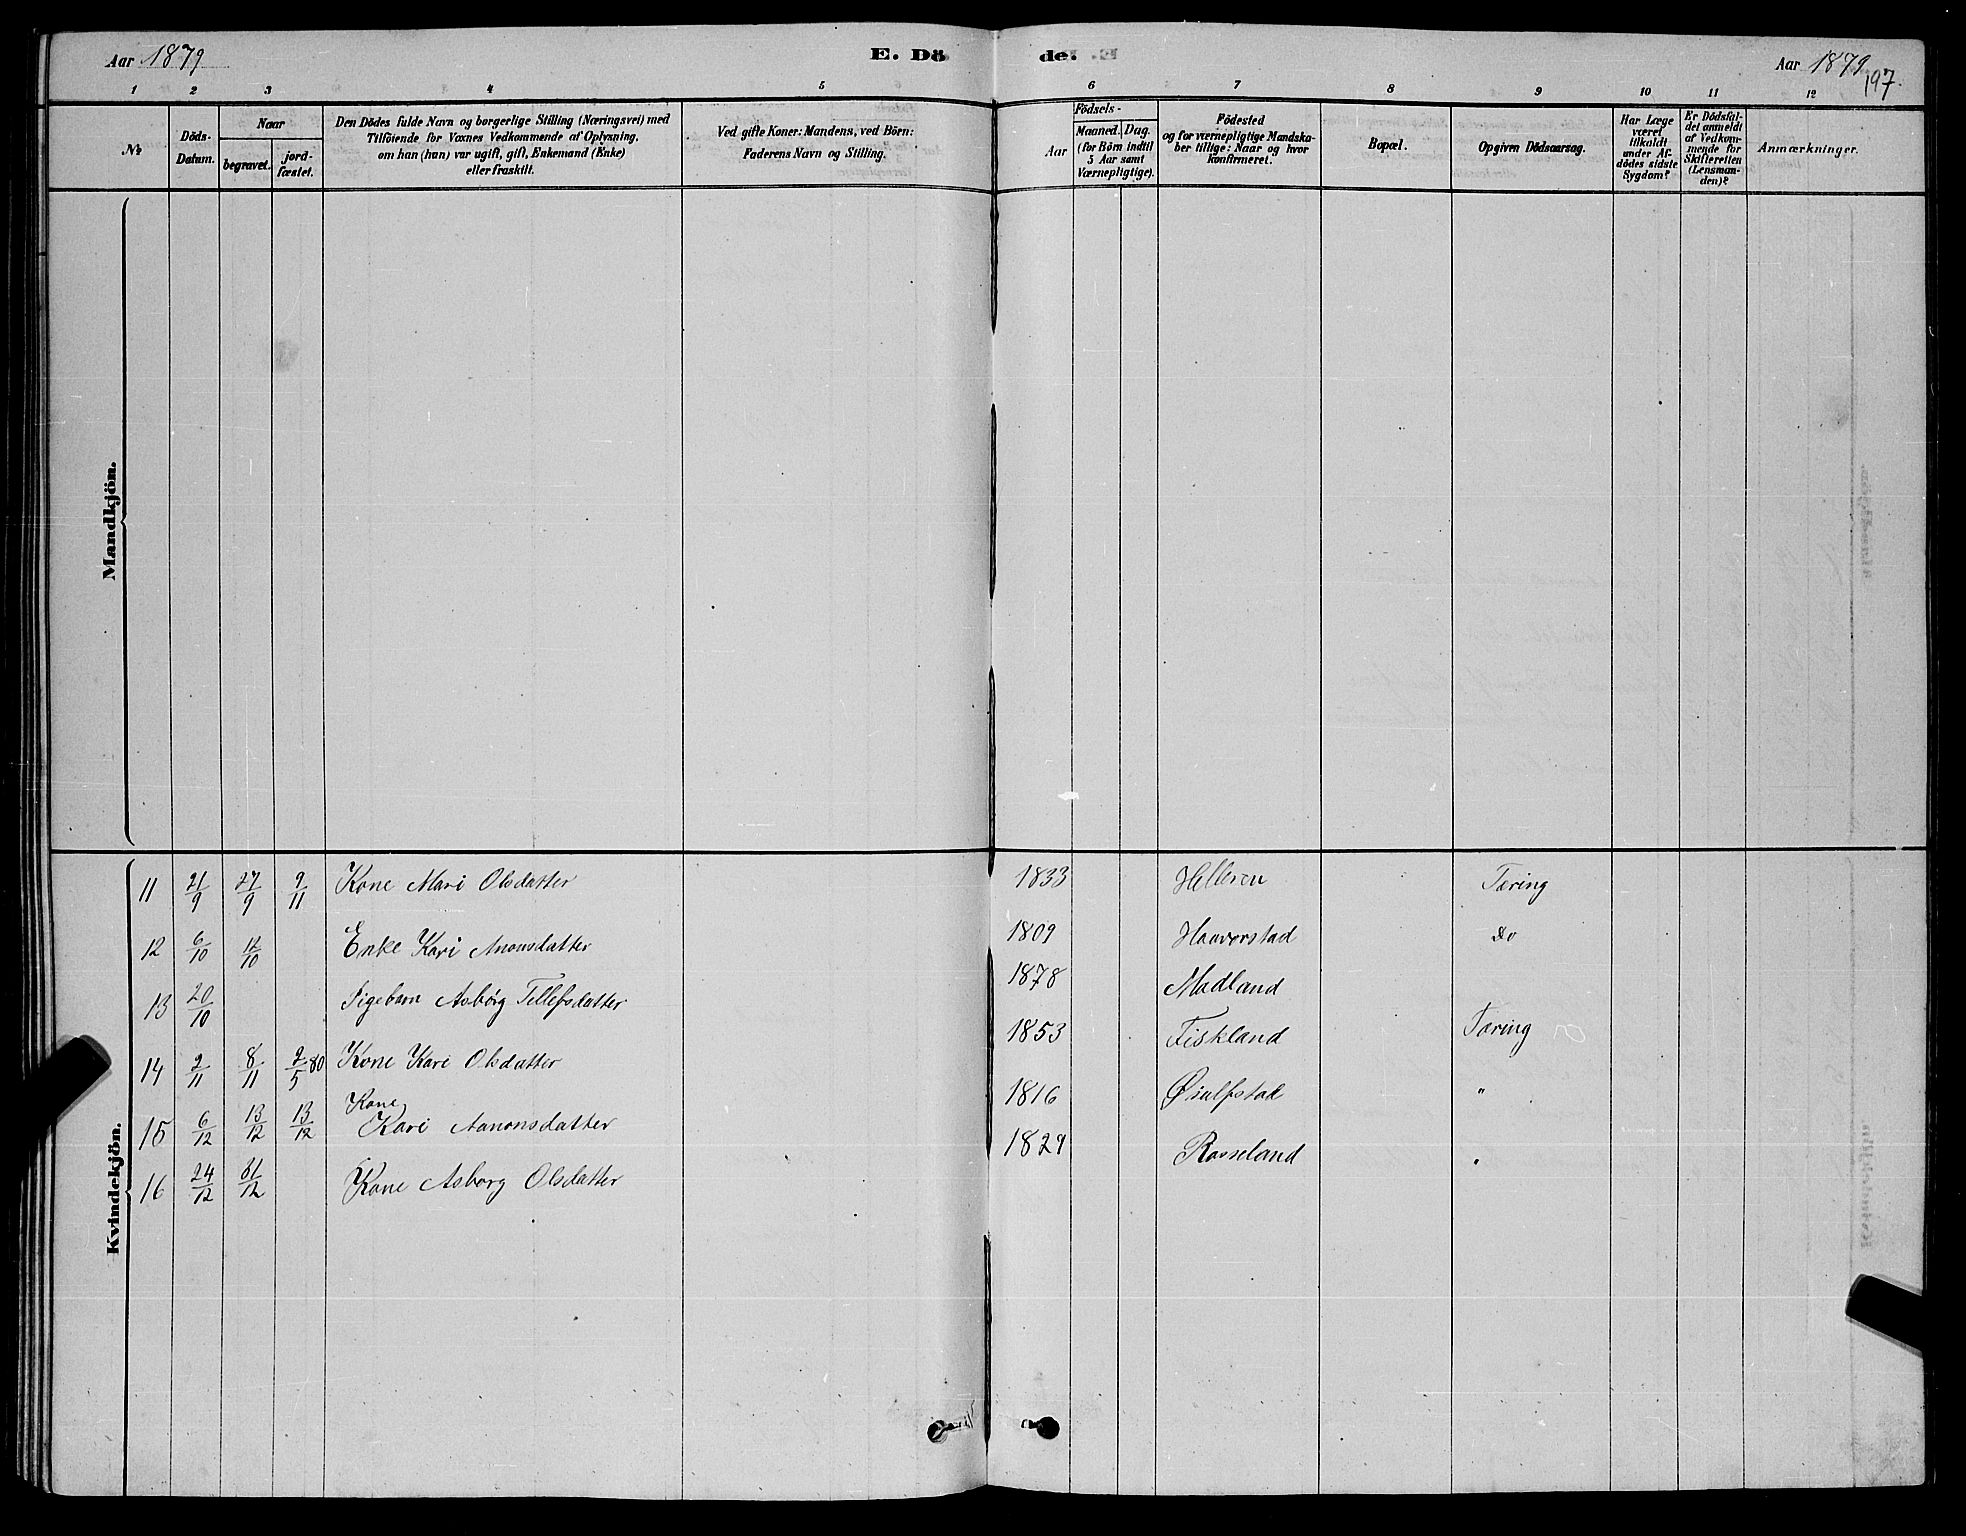 Aar 1879 E. Dö de. Aar 1879
197.
1 2 3 4 5 6 7 8 9 10 11 12
No
Döds-
Datum.
Naar
begravet.
jord-
fæstet.
Den Dödes fulde Navn og borgerlige Stilling (Næringsvei) med
Tilföiende for Voxnes Vedkommende af Oplysning,
om han (hun) var ugift, gift, Enkemand (Enke)
eller fraskilt.
Ved gifte Koner: Mandens, ved Börn:
Faderens Navn og Stilling.
Födsels-
Aar
Maaned. Dag.
(for Börn indtil
5 Aar samt
Værnepligtige).
Födested
og for værnepligtige Mandska-
ber tillige: Naar og hvor
konfirmeret.
Bopæl.
Opgiven Dödsaarsag.
Har Læge
været
tilkaldt
under Af-
dödes sidste
Sygdom?
Er Dödsfal-
det anmeldt
af Vedkom-
mende for
Skifteretten
(Lensman-
den)?
Anmærkninger.
Mandkjön.
Kvindekjön.
11 21/9 27/9 9/11 Kone Mari Olsdatter 1833 Helleren Tæring
12 6/10 12/10 Enke Kari Anonsdatter 1809 Haaverstad Do
13 20/10 Pigebarn Asbörg Tellefsdatter 1878 Madland
14 2/11 8/11 2/5 80 Kone Kari Olsdatter 1853 Fiskland Tæring
15 6/12 13/12 13/12 Kone Kari Aanonsdatter 1816 Øiulfstad "
16 24/12 31/12 Kone Asborg Olsdatter 1829 Rosseland "